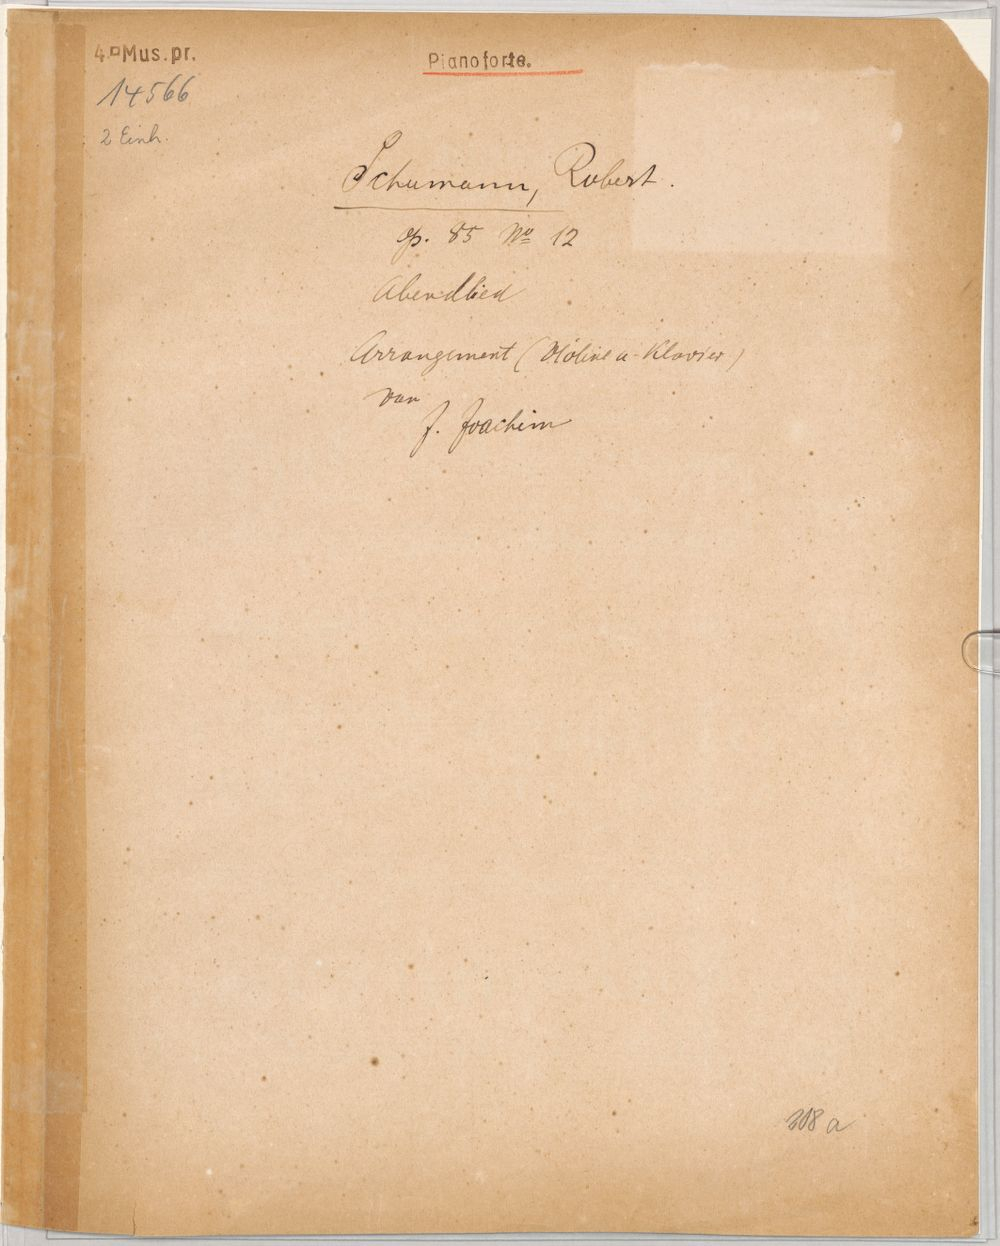 4.° Mus. pr.
14566
2 Einh.
Pianoforte.
Schumann, Robert.
op. 85 No 12
Abendlied
Arrangement (Violine u. Klavier)
von
J. Joachim
308 a